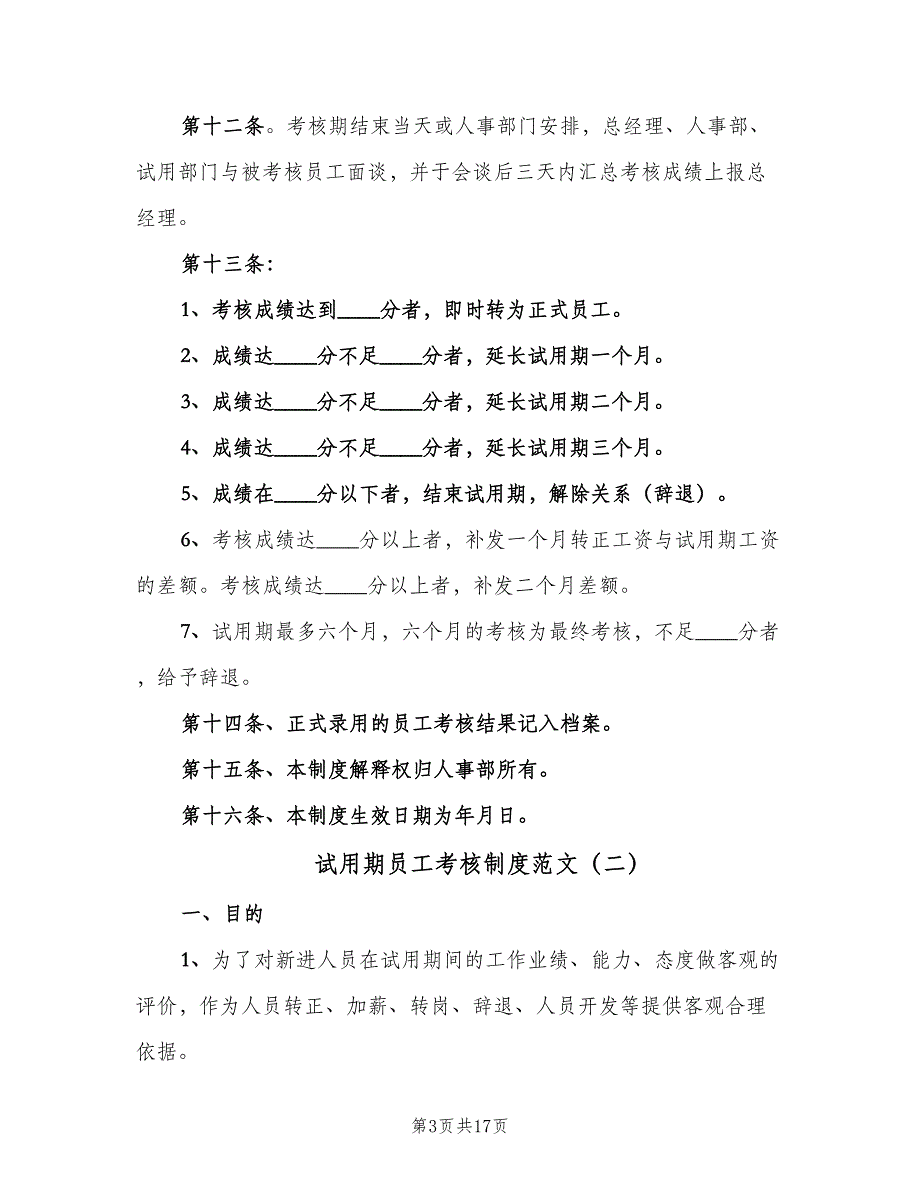 第十二条。考核期结束当天或人事部门安排，总经理、人事部、
试用部门与被考核员工面谈，并于会谈后三天内汇总考核成绩上报总
经理。
第十三条：
1、考核成绩达到____分者，即时转为正式员工。
2、成绩达____分不足____分者，延长试用期一个月。
3、成绩达____分不足____分者，延长试用期二个月。
4、成绩达____分不足____分者，延长试用期三个月。
5、成绩在____分以下者，结束试用期，解除关系（辞退）。
6、考核成绩达____分以上者，补发一个月转正工资与试用期工资
的差额。考核成绩达____分以上者，补发二个月差额。
7、试用期最多六个月，六个月的考核为最终考核，不足____分者
，给予辞退。
第十四条、正式录用的员工考核结果记入档案。
第十五条、本制度解释权归人事部所有。
第十六条、本制度生效日期为年月日。
试用期员工考核制度范文（二）
一、目的
1、为了对新进人员在试用期间的工作业绩、能力、态度做客观的
评价，作为人员转正、加薪、转岗、辞退、人员开发等提供客观合理
依据。
第3页共17页